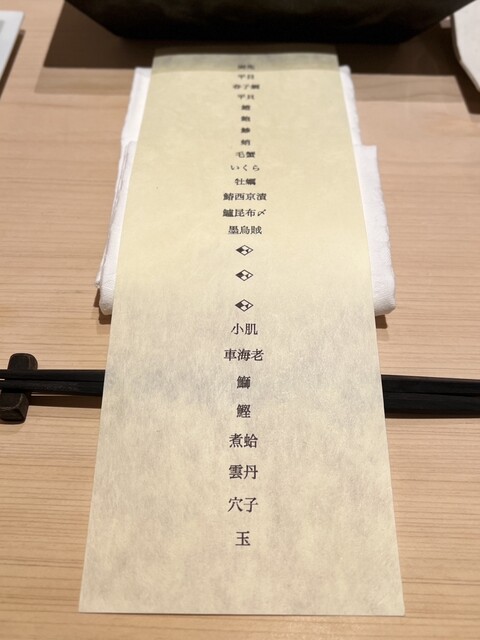 平目
平貝
鮑
毛蟹
いくら
牡蠣
鰆西京漬
鱸昆布〆
墨烏賊
小肌
車海老
鰤
鰹
煮蛤
雲丹
穴子
玉